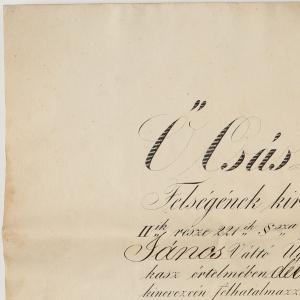 Ő Csás
Felségének kir
IIik része 221ik §sza
János Váltó Ügy
kasz értelmében
kinevezvén felhatalmazz